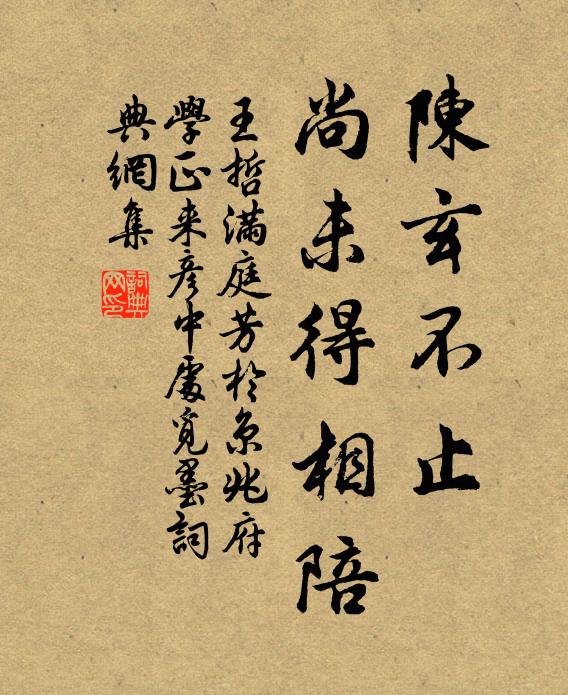 陳玄不止
尚未得相陪
王哲滿庭芳於京兆府
學正来彦中處覓墨詞
典網集
詞典網印